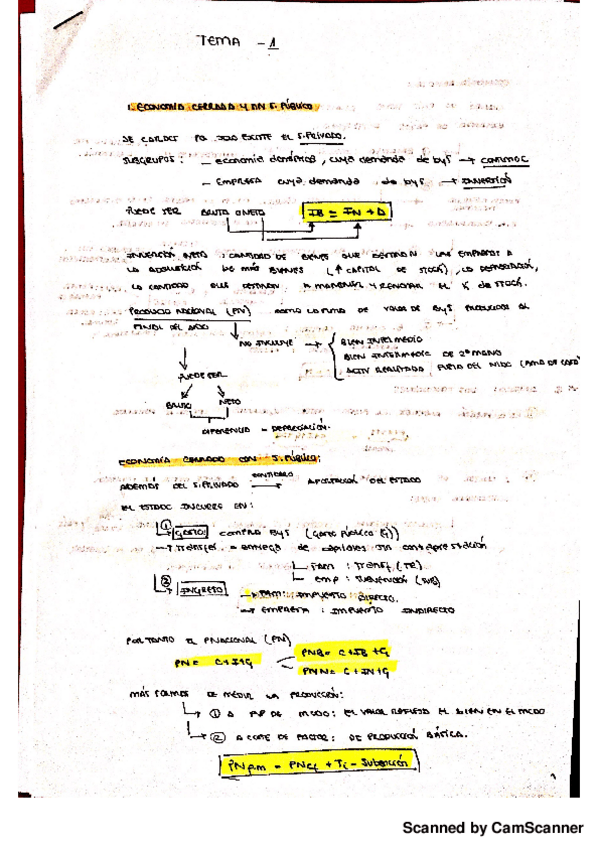 TEMA - 1
1. ECONOMÍA CERRADA Y SIN S.PÚBLICO
SE CARACT. SOLO EXISTE EL S.PRIVADO.
SUBGRUPOS: - economía doméstica, cuya demanda de byS → CONSUMO C
- EMPRESA cuya demanda de byS → INVERSIÓN
PUEDE SER BRUTA O NETA IB = IN + D
INVERSIÓN NETA : CANTIDAD DE BIENES QUE DESTINAN LAS EMPRESAS A
LA ADQUISICIÓN DE MÁS BIENES (↑ CAPITAL DE STOCK), LA DEPRECIACIÓN,
LA CANTIDAD QUE DESTINAN A MANTENER Y RENOVAR EL K de STOCK.
PRODUCTO NACIONAL (PN) COMO LA SUMA DE VALOR DE ByS PRODUCIDOS AL
FINAL DEL AÑO
NO INCLUYE → BIEN INTERMEDIO
BIEN INTERMEDIO DE 2ª MANO
ACTIV REALIZADA FUERA DEL MDO (AMA DE CASA)
PUEDE SER
BRUTO NETO
DIFERENCIA = DEPRECIACIÓN.
ECONOMÍA CERRADA CON S.PÚBLICO:
ADEMÁS DEL S.PRIVADO APORTACIÓN DEL ESTADO
EL ESTADO INCURRE EN:
① GASTO: COMPRA ByS (Gasto Público G)
→ Transfer = entrega de capitales sin contraprestación
FAM : Transf (TR)
emp : SUBVENCIÓN (SUB)
② INGRESO → FAM: IMPUESTO DIRECTO.
→ EMPRESA : IMPUESTO INDIRECTO
POR TANTO EL P.NACIONAL (PN)
PN = C+I+G
PNB = C+IB+G
PNN = C+IN+G
MÁS FORMAS DE MEDIR LA PRODUCCIÓN:
① A PVP DE MDO: EL VALOR REFLEJO EL BIEN EN EL MDO
② A COSTE DE FACTOR: DE PRODUCCIÓN BÁSICA.
PNpm = PNcf + Ti - Subvención
1
Scanned by CamScanner